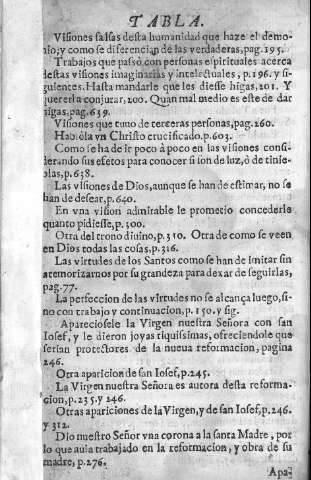 TABLA.
Visiones falsas desta humanidad que haze el demo-
nio; y como se diferencian de las verdaderas, pag. 195.
Trabajos que passò con personas espirituales acerca
destas visiones imaginarias y intelectuales, p. 196. y si-
guientes. Hasta mandarle que les diesse higas, 201. Y
quererla conjurar, 200. Quan mal medio es este de dar
higas, pag. 639.
Visiones que tuuo de terceras personas, pag. 260.
Hablòla vn Christo crucificado. p. 603.
Como se ha de ir poco à poco en las visiones consi-
derando sus efetos para conocer si son de luz, ò de tinie-
blas, p. 638.
Las visiones de Dios, aunque se han de estimar, no se
han de desear, p. 640.
En vna vision admirable le prometio concederle
quanto pidiesse, p. 300.
Otra del trono diuino, p. 310. Otra de como se veen
en Dios todas las cosas, p. 316.
Las virtudes de los Santos como se han de imitar sin
atemorizarnos por su grandeza para dexar de seguirlas,
pag. 77.
La perfeccion de las virtudes no se alcança luego, si-
no con trabajo y continuacion, p. 150. y sig.
Apareciosele la Virgen nuestra Señora con san
Iosef, y le dieron joyas riquissimas, ofreciendole que
serian protectores de la nueua reformacion, pagina
246.
Otra aparicion de san Iosef, p. 245.
La Virgen nuestra Señora es autora desta reforma-
cion, p. 235. y 246.
Otras apariciones de la Virgen, y de san Iosef, p. 246.
y 312.
Dio nuestro Señor vna corona a la santa Madre, por
lo que auia trabajado en la reformacion, y obra de su
madre, p. 276.
Apa-